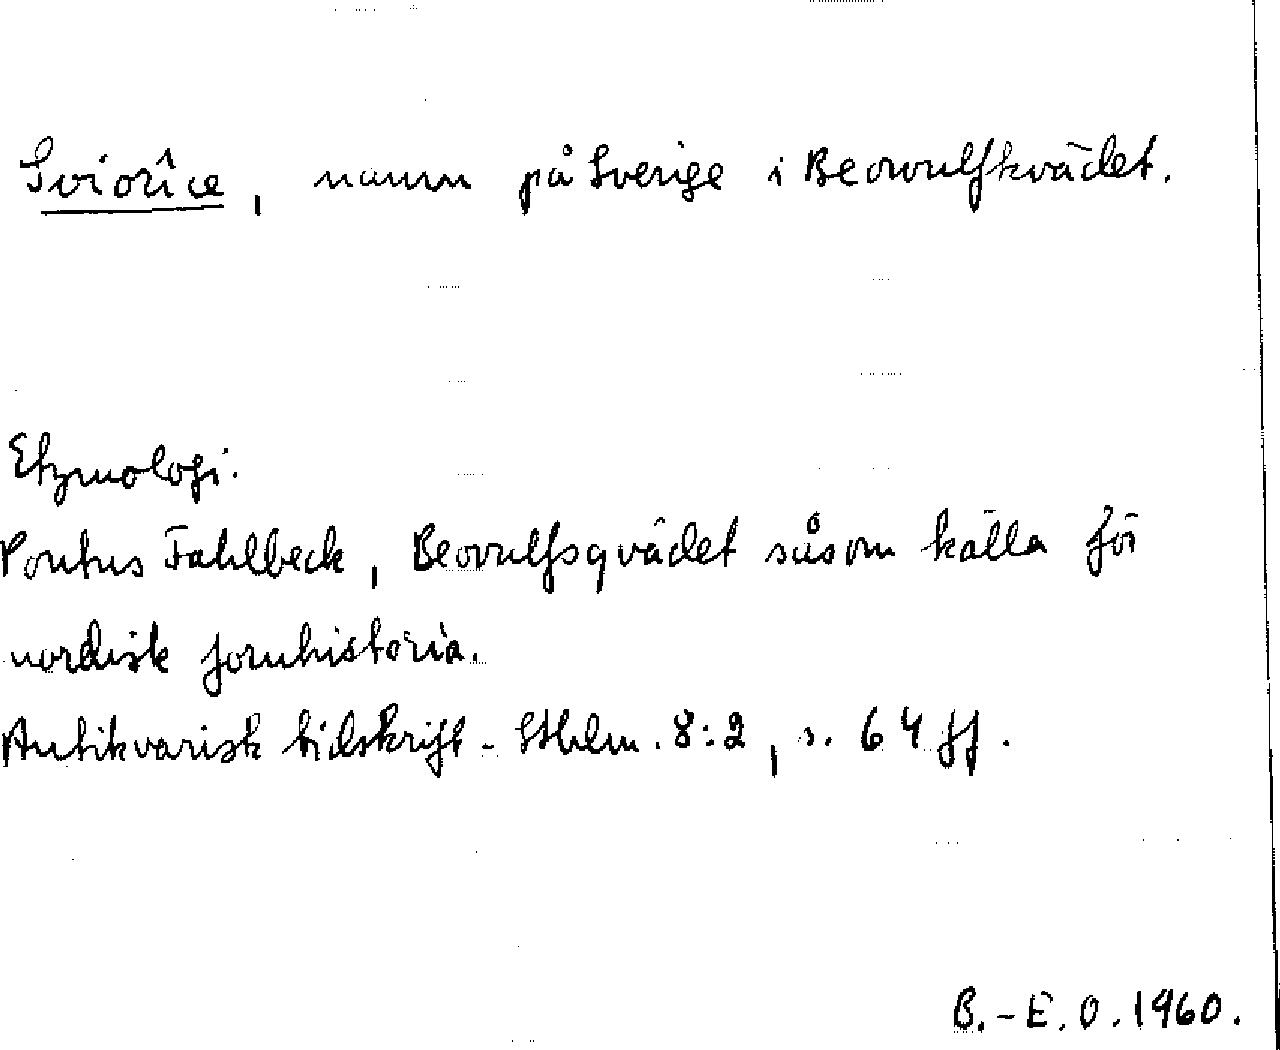 Sviorîce, namn på Sverige i Beowulfkvädet.
Etymologi.
Pontus Fahlbeck, Beovulfsqvädet såsom källa för
nordisk fornhistoria.
Antikvarisk tidskrift - Sthlm. 8:2, s. 64 ff.
B.-E.O. 1960.